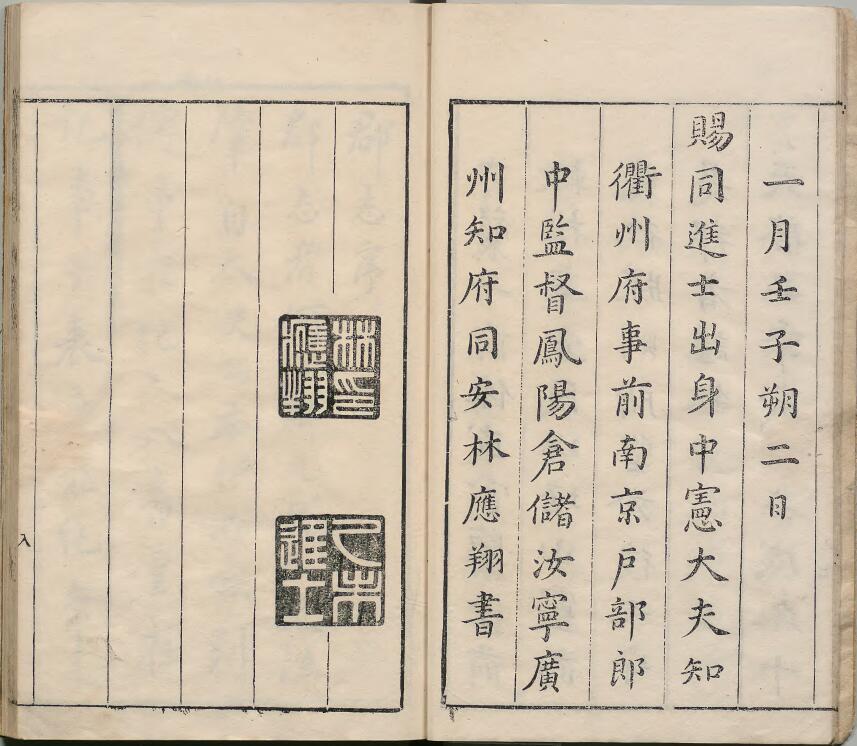 一月壬子朔二日
賜同進士出身中憲大夫知
衢州府事前南京戶部郎
中監督鳳陽倉儲汝寧廣
州知府同安林應翔書
林印應翔
乙未進士
八